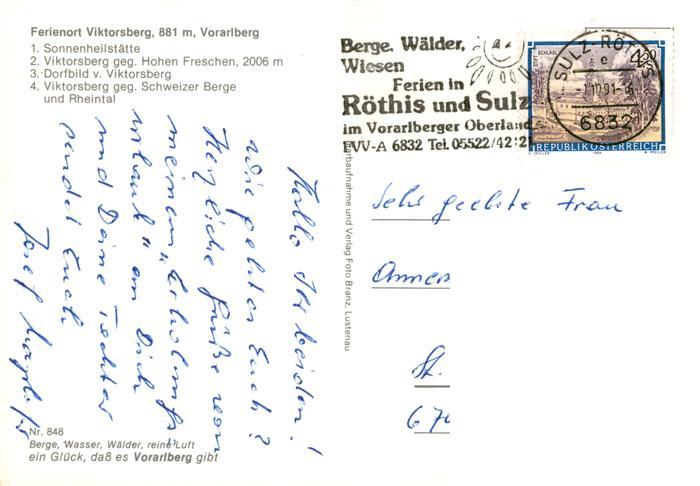 Ferienort Viktorsberg, 881 m, Vorarlberg
1. Sonnenheilstätte
2. Viktorsberg geg. Hohen Freschen, 2006 m
3. Dorfbild v. Viktorsberg
4. Viktorsberg geg. Schweizer Berge
und Rheintal
Hallo Ihr beiden!
Wie geht es Euch?
Herzliche Grüße von
meinem "Erholungs-
urlaub" an Dich
und Deine Tochter
sendet Euch
Josef
Nr. 848
Berge, Wasser, Wälder, reine Luft
ein Glück, daß es Vorarlberg gibt
Farbaufnahme und Verlag Foto Branz, Lustenau
Berge, Wälder,
Wiesen
Ferien in
Röthis und Sulz
im Vorarlberger Oberland
FVV-A 6832 Tel. 05522/42121
SULZ-RÖTHIS
e
-1.10.91-
6832
STIFT SCHLÄGL
REPUBLIK ÖSTERREICH
Sehr geehrte Frau
Annem
St.
670